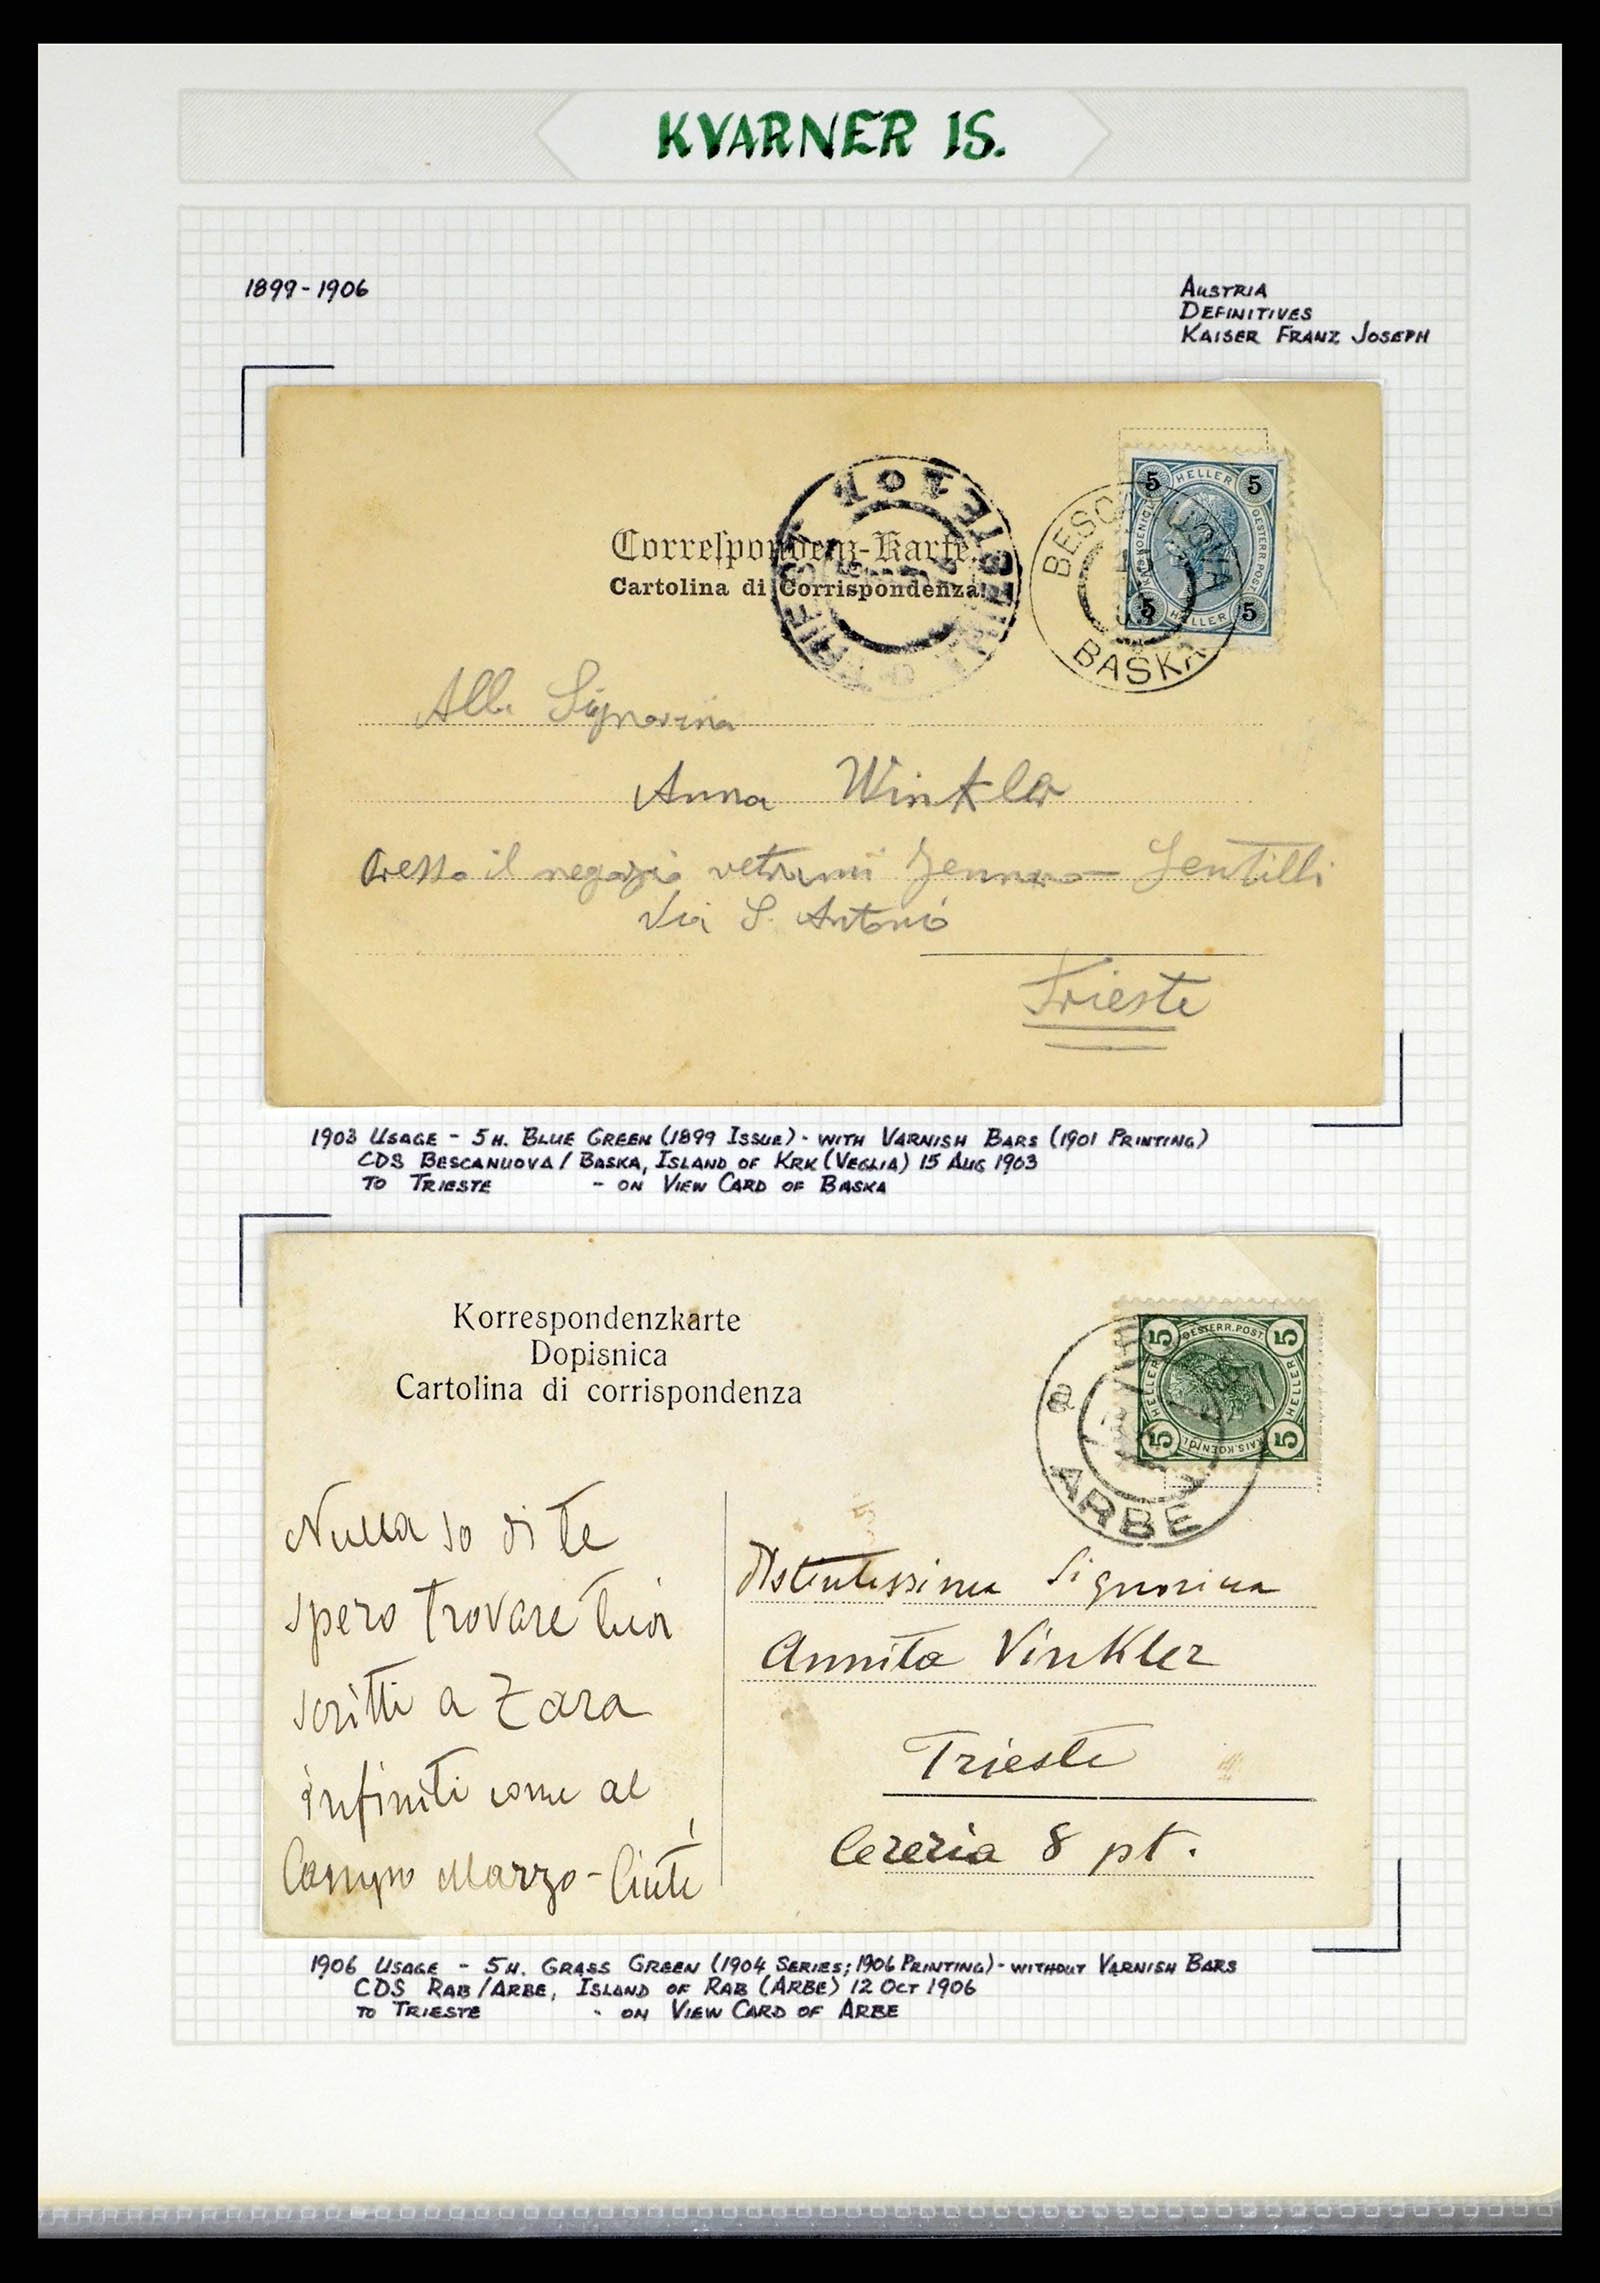 KVARNER IS.
1899-1906
AUSTRIA
DEFINITIVES
KAISER FRANZ JOSEPH
Correspondenz-Karte.
Cartolina di Corrispondenza
5 HELLER 5
KAIS. KOENIGL.
OESTERR. POST.
5 HELLER 5
BESCANUOVA
BASKA
TRIEST
Alla Signorina
Anna Winkler
Presso il negozio vetrami Jennaro Gentilli
Via S. Antonio
Trieste
1903 USAGE - 5H. BLUE GREEN (1899 ISSUE) - WITH VARNISH BARS (1901 PRINTING)
CDS BESCANUOVA / BASKA, ISLAND OF KRK (VEGLIA) 15 AUG 1903
TO TRIESTE - ON VIEW CARD OF BASKA
Korrespondenzkarte
Dopisnica
Cartolina di corrispondenza
5 OESTERR. POST. 5
HELLER
HELLER
5 KAIS. KOENIGL. 5
a
ARBE
Nulla so di te
spero trovare tuoi
scritti a Zara
infiniti come al
Campo Marzo -
Distintissima Signorina
Annita Vinkler
Trieste
Cereria 8 pt.
1906 USAGE - 5H. GRASS GREEN (1904 SERIES; 1906 PRINTING) - WITHOUT VARNISH BARS
CDS RAB / ARBE, ISLAND OF RAB (ARBE) 12 OCT 1906
TO TRIESTE - ON VIEW CARD OF ARBE